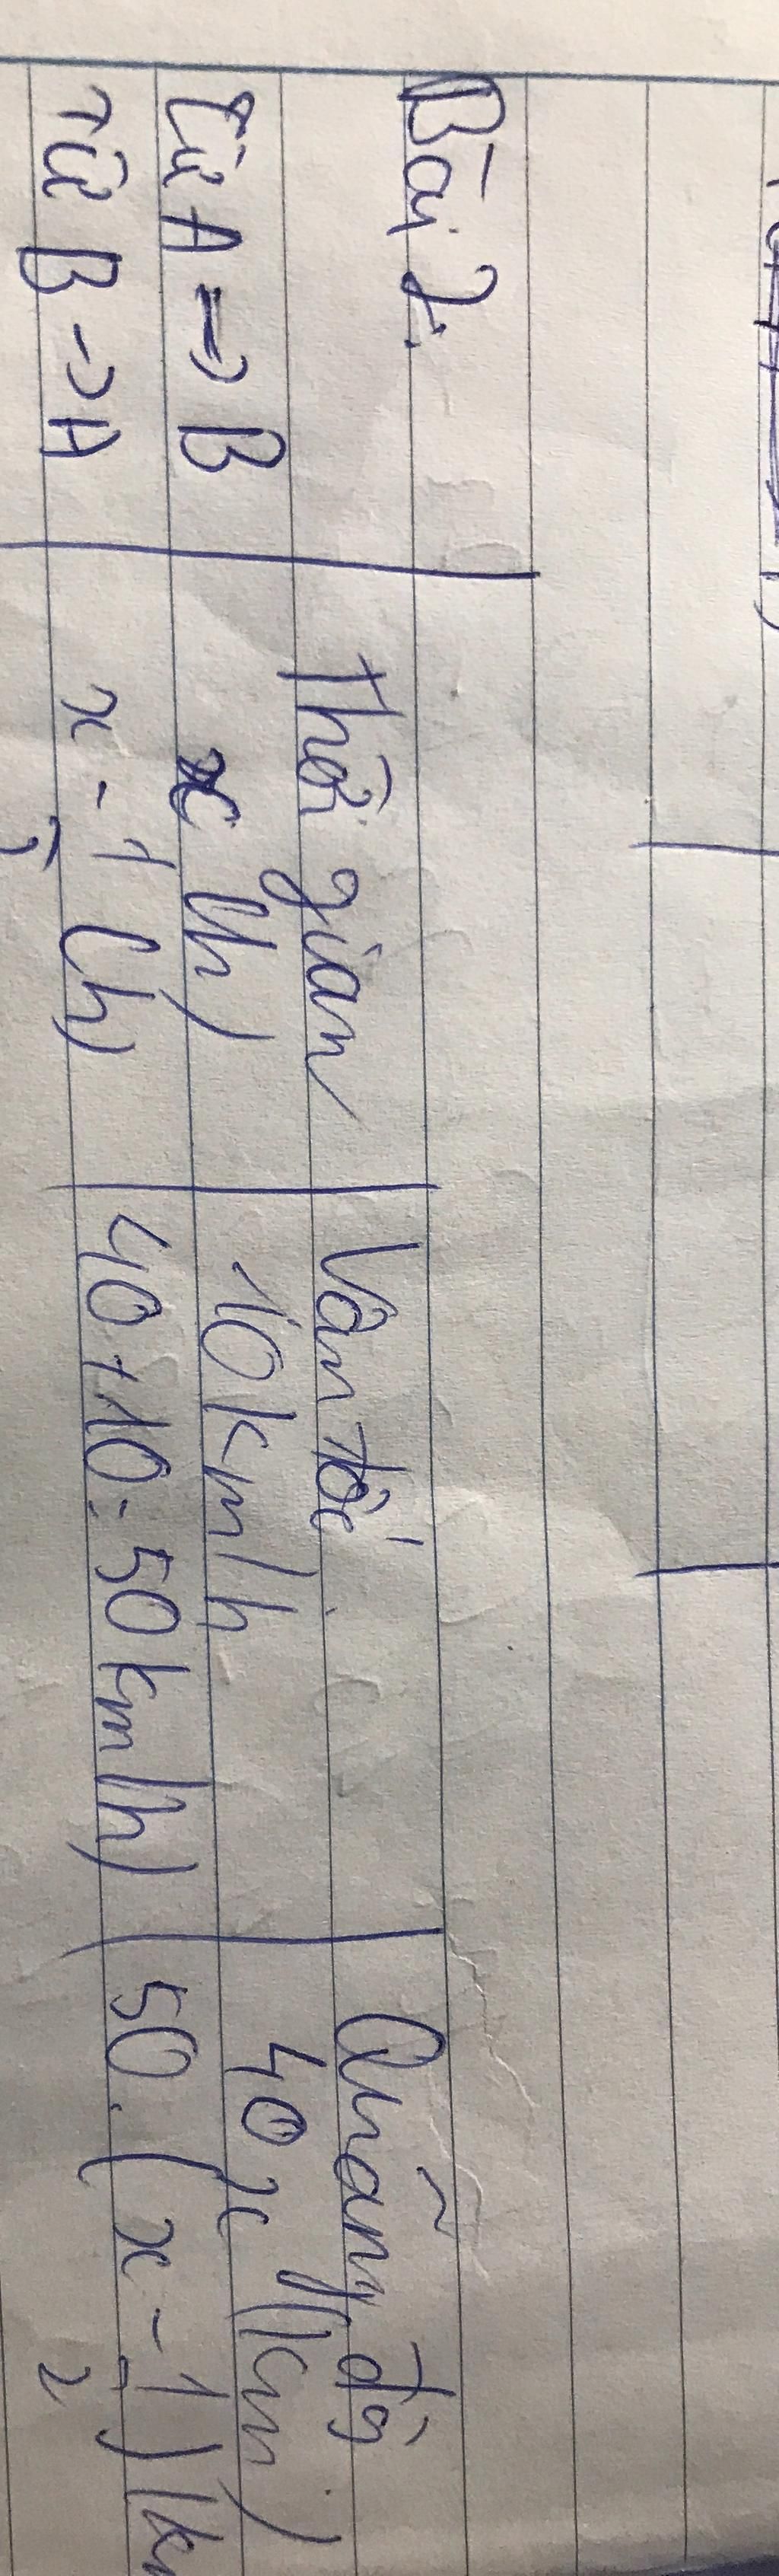 Bài 2:
Thời gian Vận tốc Quãng đg
từ A => B x (h) 40km/h 40x (km)
Từ B -> A x - 1/2 (h) 40+10=50km/h) 50.(x - 1/2) (km